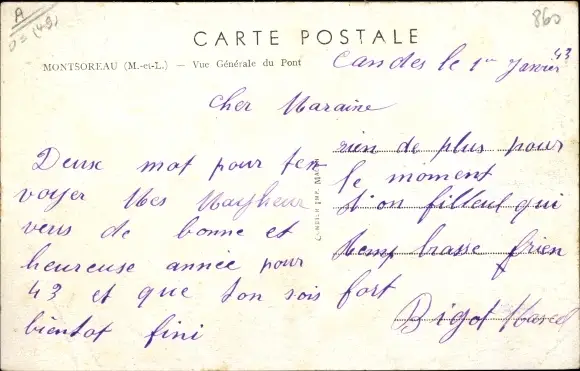 A
860
CARTE POSTALE
MONTSOREAU (M.-et-L.) — Vue Générale du Pont
Candes le 1er Janvier 43
Cher Maraine
Deux mot pour ten
voyer Mes Mayheur
veus de bonne et
heureuse année pour
43 et que ton sois
bientot fini
rien de plus pour
le moment
t'on filleul qui
temp brasse frien
fort
Bigot Marcel
IMP.